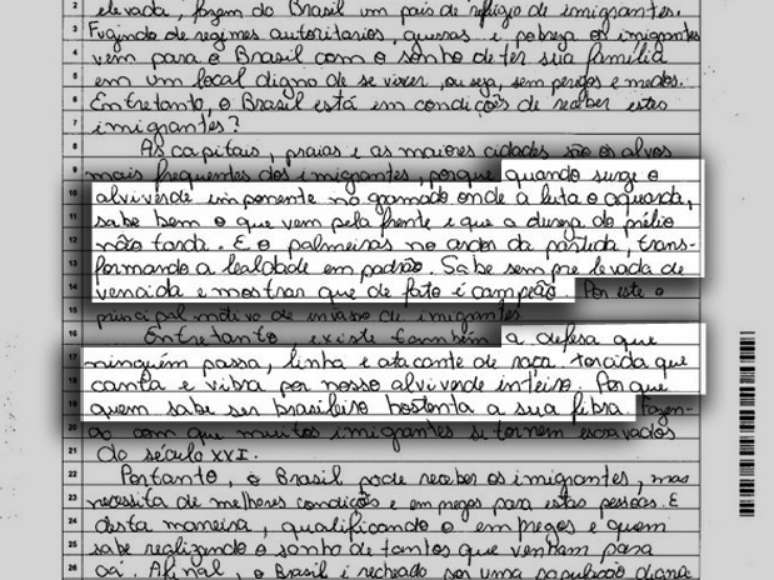 2 elevada, fazem do Brasil um país de refúgio de imigrantes.
3 Fugindo de regimes autoritarios, guerras e pobreza os imigrantes
4 vem para o Brasil com o sonho de ter sua família
5 em um local digno de se viver, ou seja, sem perigos e medos.
6 Entretanto, o Brasil está em condições de receber estes
7 imigrantes?
8 As capitais, praias e as maiores cidades são os alvos
9 mais frequentes dos imigrantes, porque quando surge o
10 alviverde imponente no gramado onde a luta o aguarda,
11 sabe bem o que vem pela frente e que a dureza do prélio
12 não tarda. E o palmeiras no ardor da partida, trans-
13 formando a lealdade em padrão. Sabe sempre levada de
14 vencida e mostrar que de fato é campeão. Por este o
15 principal motivo de invasão de imigrantes
16 Entretanto, existe também a defesa que
17 ninguém passa, linha e atacante de raça. torcida que
18 canta e vibra por nosso alviverde inteiro. Porque
19 quem sabe ser brasileiro hostenta a sua fibra. Fazen-
20 do com que muitos imigrantes se tornem escravados
21 do século XXI.
22 Portanto, o Brasil pode receber os imigrantes, mas
23 necessita de melhores condições e empregos para estas pessoas. E
24 desta maneira, qualificando o empregos e quem
25 sabe realizando o sonho de tantos que venham para
26 cá. Afinal, o Brasil é recheado por uma população